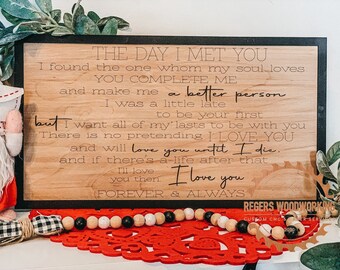 THE DAY I MET YOU
I found the one whom my soul loves
YOU COMPLETE ME
and make me a better person
I was a little late
to be your first
but I want all of my lasts to be with you
There is no pretending I LOVE YOU
and will love you until I die
and if there's a life after that
I'll love
you then I love you
FOREVER & ALWAYS
REGERS WOODWORKING